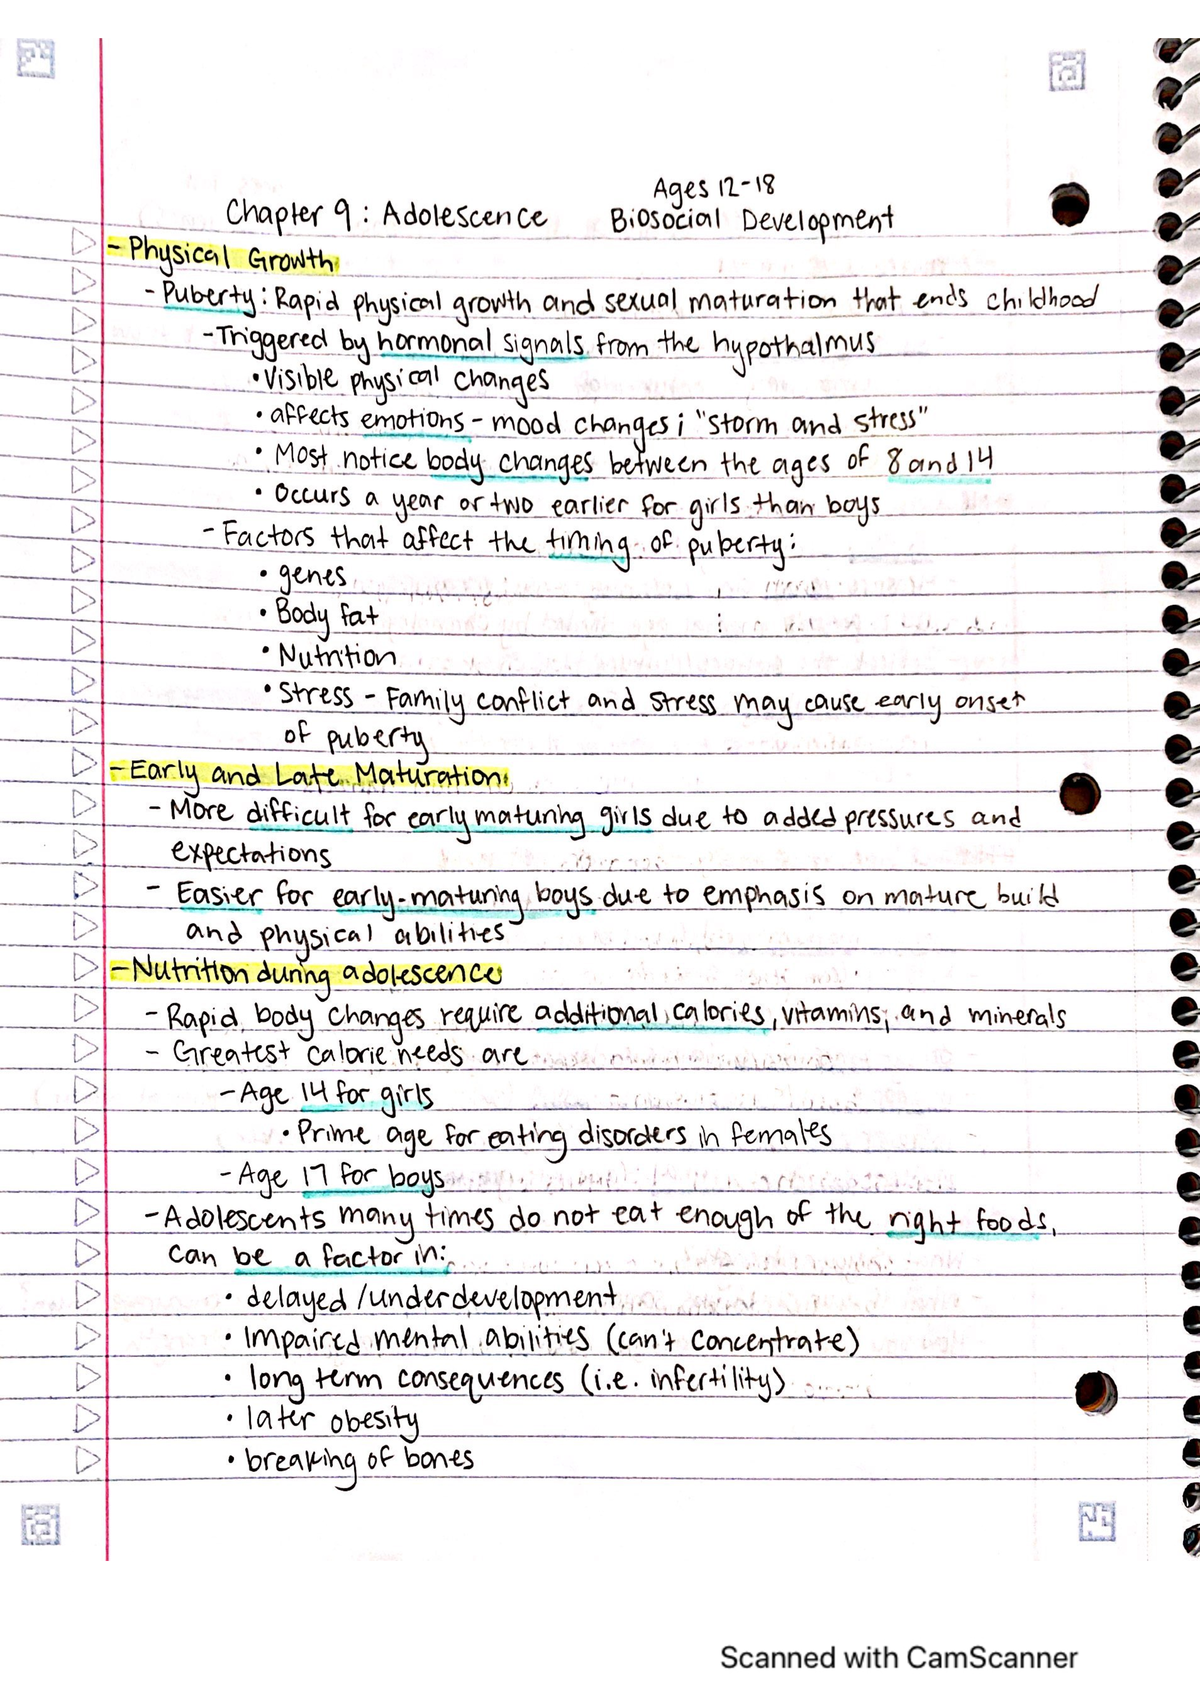 Ages 12-18
Chapter 9: Adolescence Biosocial Development
- Physical Growth
- Puberty: Rapid physical growth and sexual maturation that ends childhood
- Triggered by hormonal signals from the hypothalmus
• Visible physical changes
• affects emotions - mood changes; "storm and stress"
• Most notice body changes between the ages of 8 and 14
• Occurs a year or two earlier for girls than boys
- Factors that affect the timing of puberty:
• genes
• Body fat
• Nutrition
• Stress - Family conflict and stress may cause early onset
of puberty
- Early and Late Maturation
- More difficult for early maturing girls due to added pressures and
expectations
- Easier for early-maturing boys due to emphasis on mature build
and physical abilities
- Nutrition during adolescence
- Rapid body changes require additional calories, vitamins, and minerals
- Greatest calorie needs are
- Age 14 for girls
• Prime age for eating disorders in females
- Age 17 for boys
- Adolescents many times do not eat enough of the right foods,
can be a factor in:
• delayed/underdevelopment
• Impaired mental abilities (can't concentrate)
• long term consequences (i.e. infertility)
• later obesity
• breaking of bones
Scanned with CamScanner